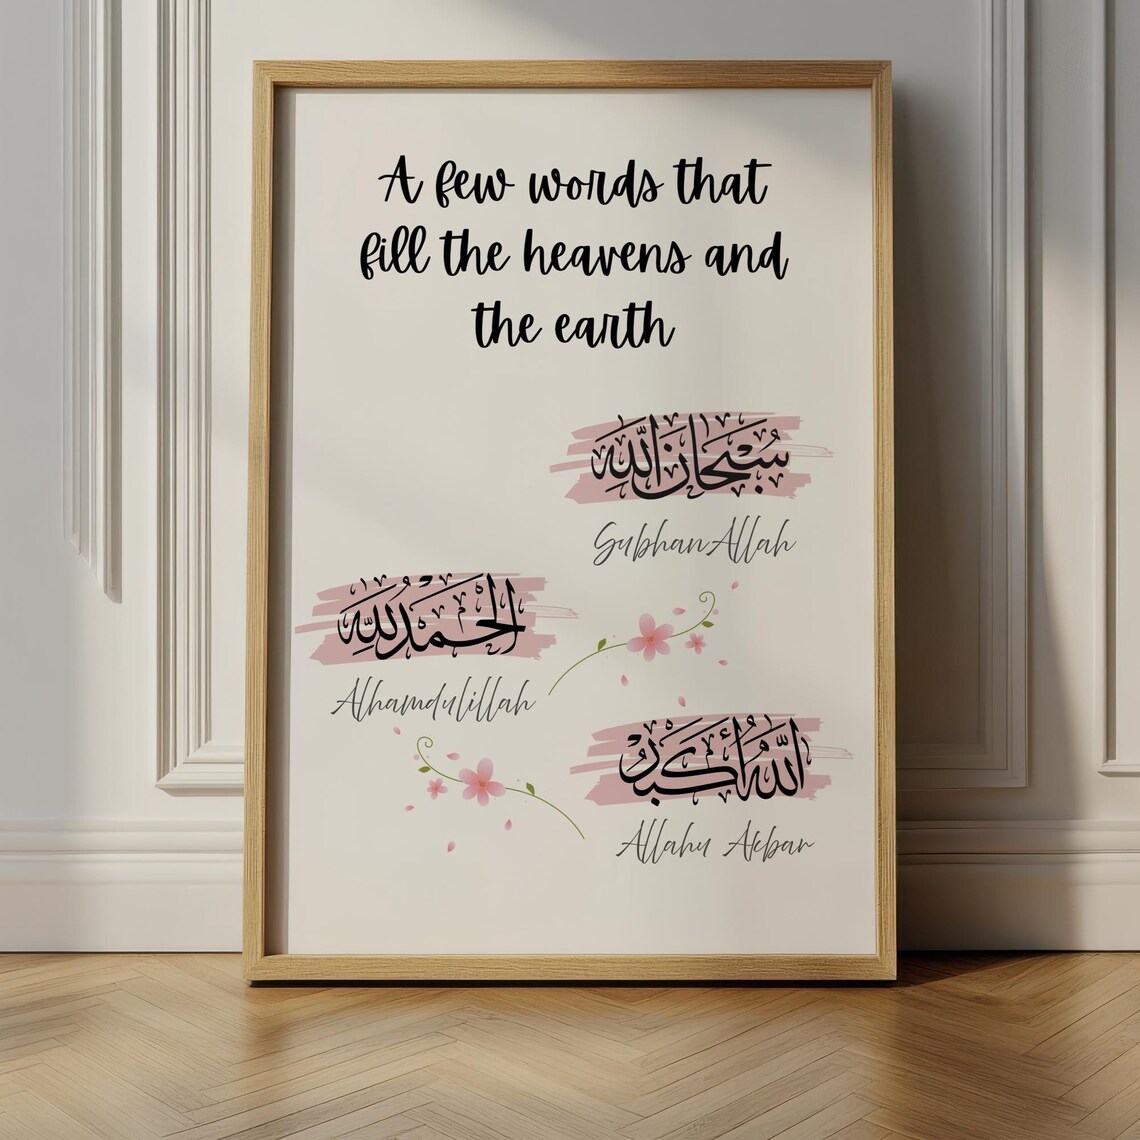 A few words that
fill the heavens and
the earth
سُبْحَانَ اللَّهِ
SubhanAllah
الْحَمْدُ لِلَّهِ
Alhamdulillah
اللَّهُ أَكْبَرُ
Allahu Akbar